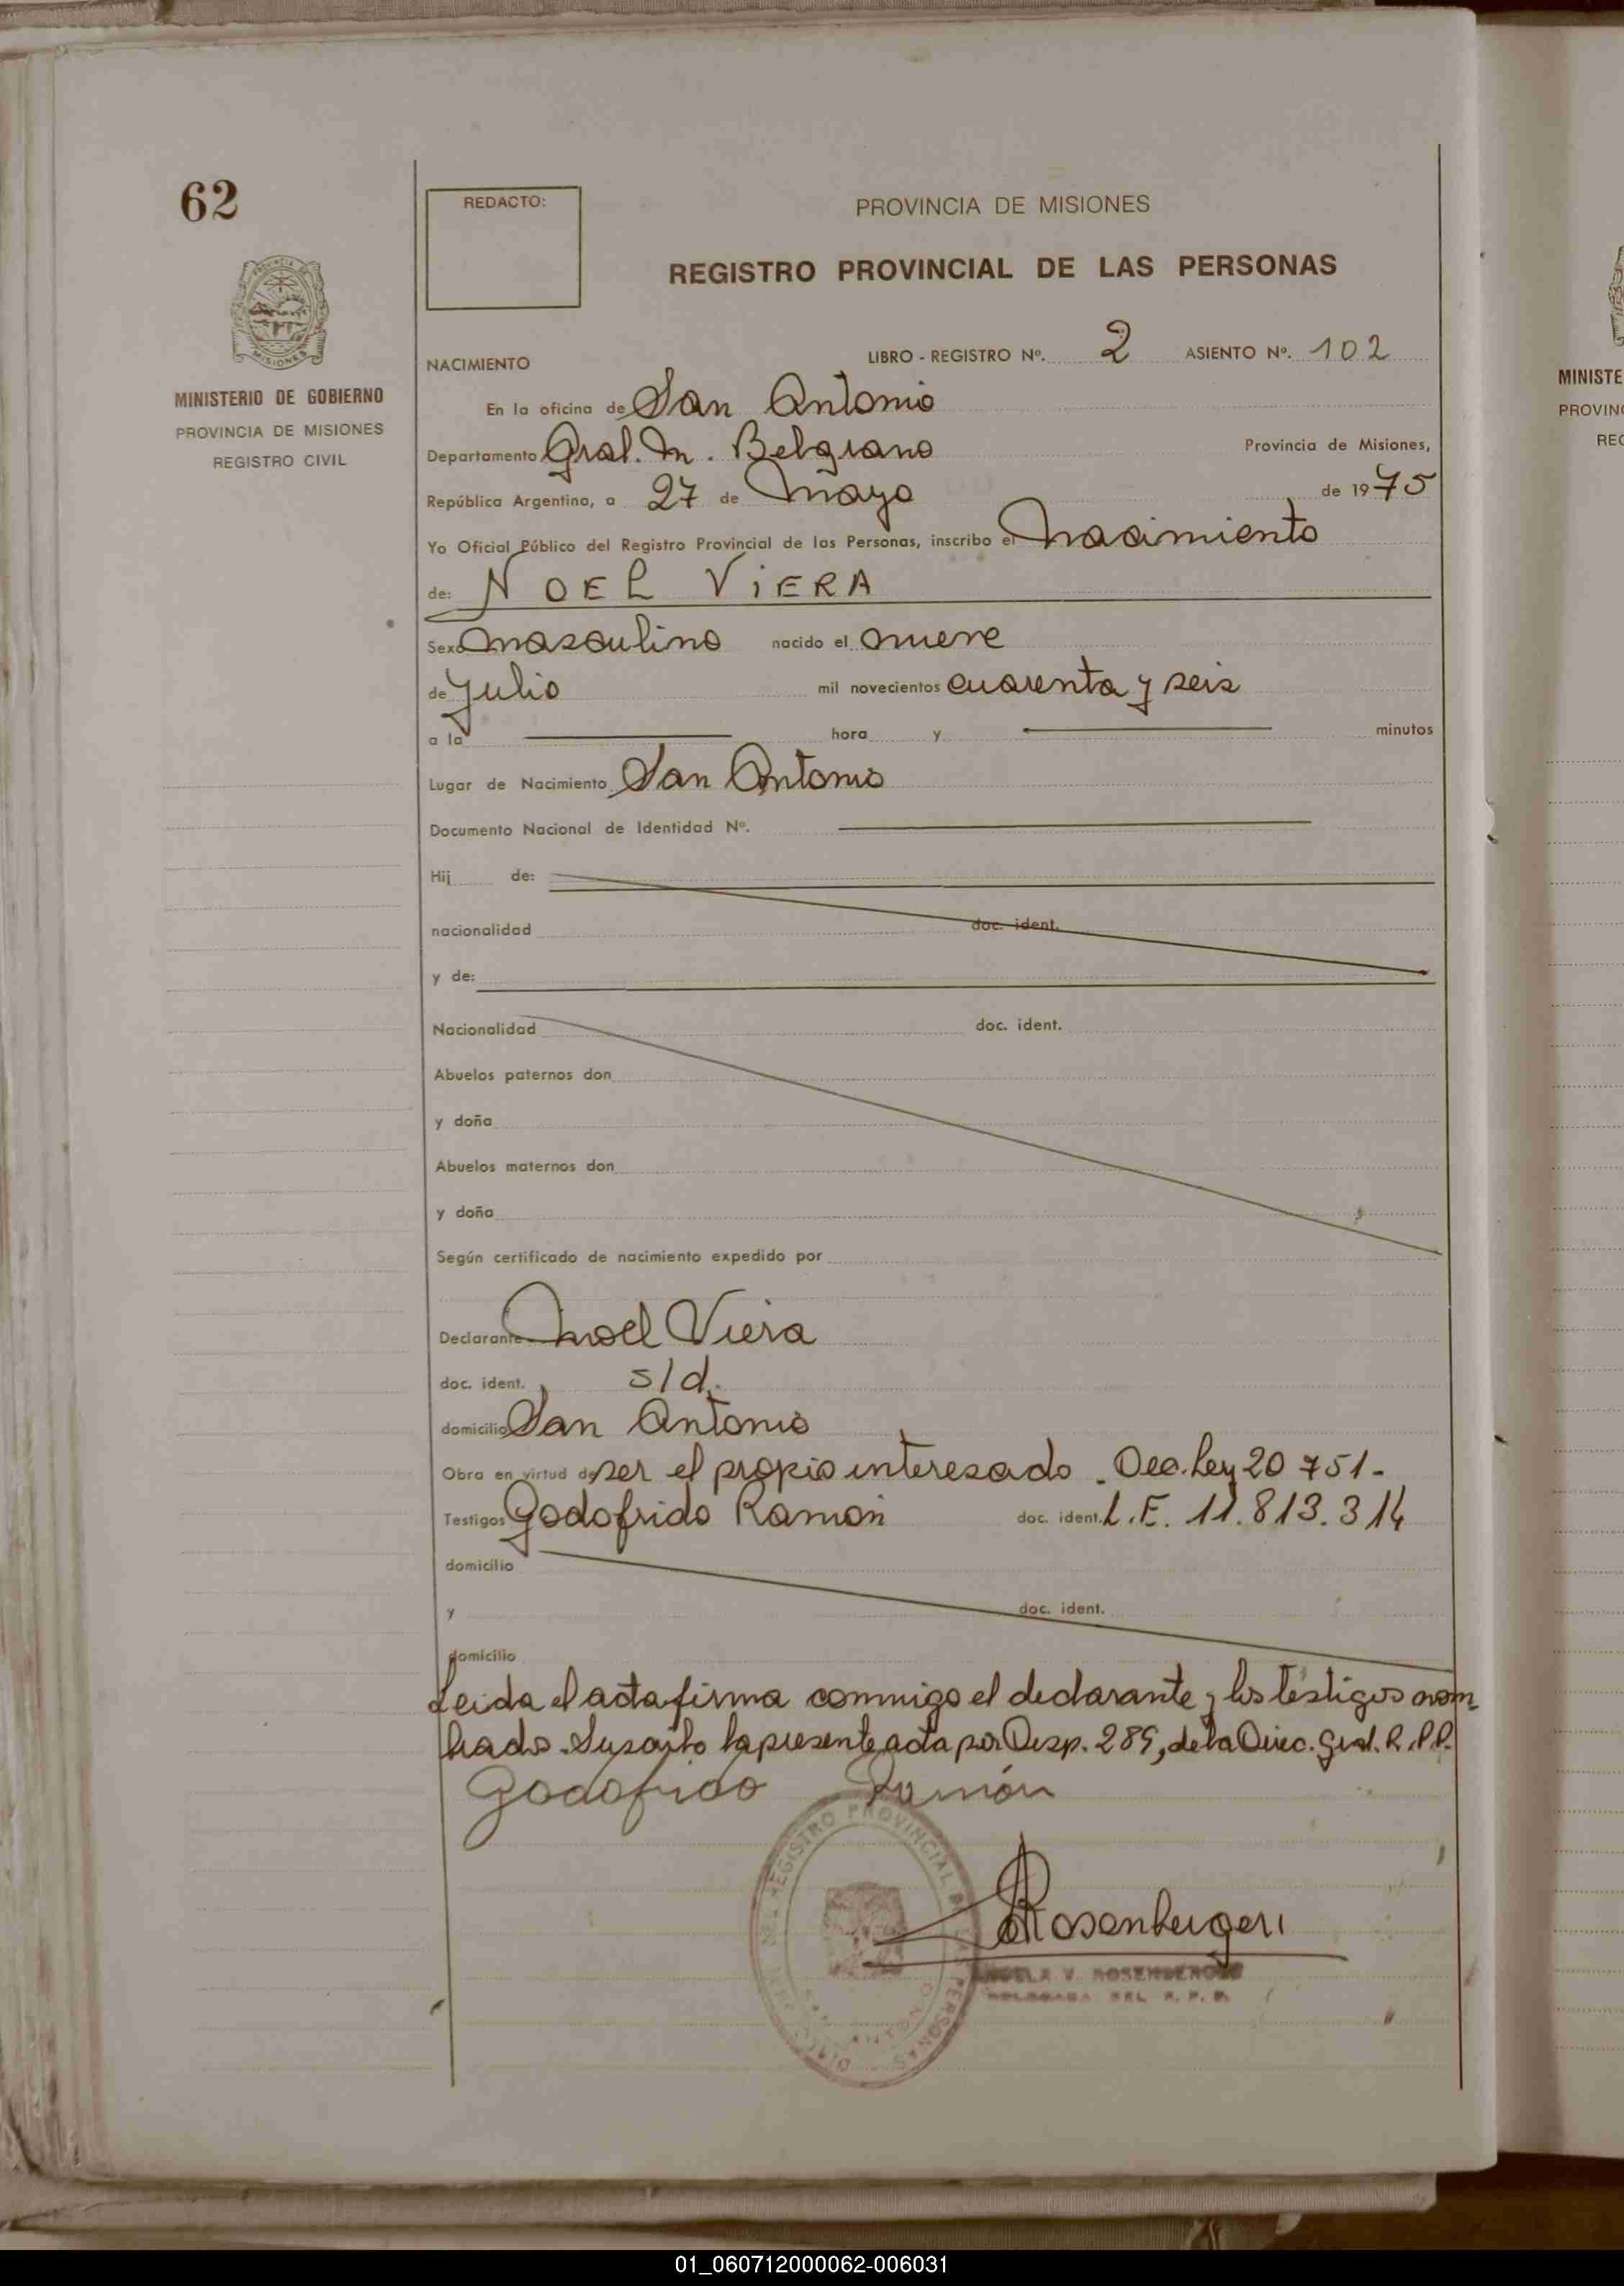 62
REDACTO:
PROVINCIA DE MISIONES
REGISTRO PROVINCIAL DE LAS PERSONAS
PROVINCIA DE
MISIONES
MINISTERIO DE GOBIERNO
PROVINCIA DE MISIONES
REGISTRO CIVIL
NACIMIENTO LIBRO - REGISTRO Nº. 2 ASIENTO Nº. 102
En la oficina de San Antonio
Departamento Gral. M. Belgrano Provincia de Misiones,
República Argentina, a 27 de Mayo de 1975
Yo Oficial Público del Registro Provincial de las Personas, inscribo el Nacimiento
de: NOEL ViERA
Sexo masculino nacido el nueve
de Julio mil novecientos cuarenta y seis
a la hora y minutos
Lugar de Nacimiento San Antonio
Documento Nacional de Identidad Nº.
Hij de:
nacionalidad doc. ident.
y de:
Nacionalidad doc. ident.
Abuelos paternos don
y doña
Abuelos maternos don
y doña
Según certificado de nacimiento expedido por
Declarante Noel Viera
doc. ident. s/d.
domicilio San Antonio
Obra en virtud de ser el propio interesado. Dec. Ley 20751.-
Testigos Godofrido Ramon doc. ident. L.E. 11.813.314
domicilio
y doc. ident.
domicilio
Leida el acta firma conmigo el declarante y los testigos nom-
brado. Suscribo la presente acta por Disp. 289, de la Direc. Gral. R.P.P.
Godofrido Ramón
DEL REGISTRO PROVINCIAL PERSONAS
SAN ANTONIO
Rosenberger
ANGELA V. ROSENBERGER
DELEGADA DEL R. P. P.
MINISTE
PROVIN
REG
01_060712000062-006031